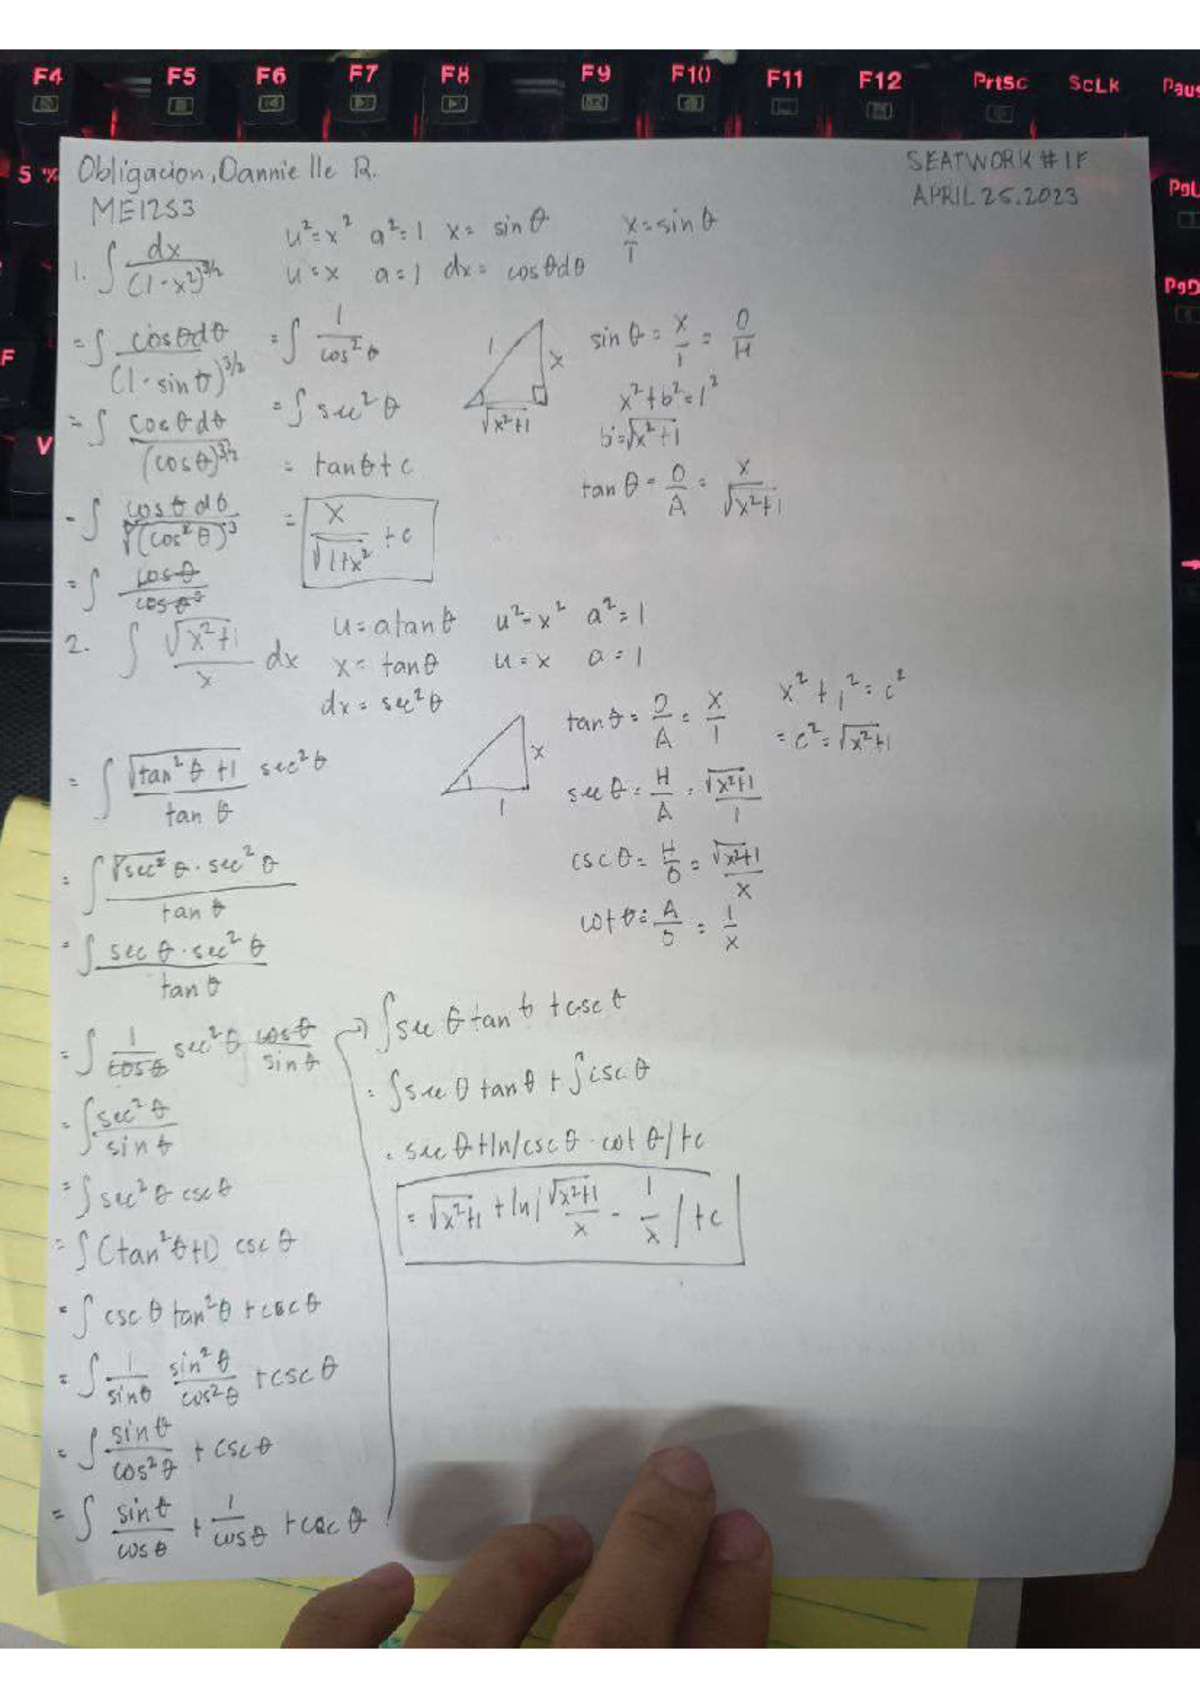 F4 F5 F6 F7 F8 F9 F10 F11 F12 PrtSc ScLk Paus
5 %
PgU
PgD
F
V
Obligacion, Dannielle R.
SEATWORK #1F
ME12S3
APRIL 25, 2023
1. ∫ dx/(1-x²)^3/2
u²=x² a²=1 x= sinθ
u=x a=1 dx= cosθdθ
x/1 = sinθ
= ∫ cosθdθ/(1-sinθ)^3/2
= ∫ cosθdθ/(cosθ)^3/2
= ∫ cosθdθ/√(cos²θ)³
= ∫ cosθ/cosθ³
= ∫ 1/cos²θ
= ∫ sec²θ
= tanθ+c
= x/√1+x² + c
1 x √x²+1
sinθ = x/1 = O/H
x²+b²=1²
b=√x²+1
tanθ = O/A = x/√x²+1
2. ∫ √x²+1/x dx
u=atanθ u²=x² a²=1
x= tanθ u=x a=1
dx= sec²θ
x 1
tanθ = O/A = x/1
x²+1²=c²
= c²=√x²+1
secθ = H/A = √x²+1/1
cscθ = H/O = √x²+1/x
cotθ = A/O = 1/x
= ∫ √tan²θ+1 sec²θ/tanθ
= ∫ √sec²θ·sec²θ/tanθ
= ∫ secθ·sec²θ/tanθ
= ∫ 1/cosθ sec²θ cosθ/sinθ
= ∫ sec²θ/sinθ
= ∫ sec²θ cscθ
= ∫ (tan²θ+1) cscθ
= ∫ cscθ tan²θ + cscθ
= ∫ 1/sinθ sin²θ/cos²θ + cscθ
= ∫ sinθ/cos²θ + cscθ
= ∫ sinθ/cosθ + 1/cosθ + cscθ
→ ∫ secθ tanθ + cscθ
= ∫ secθ tanθ + ∫ cscθ
= secθ + ln/cscθ - cotθ/+c
= √x²+1 + ln|√x²+1/x - 1/x/+c